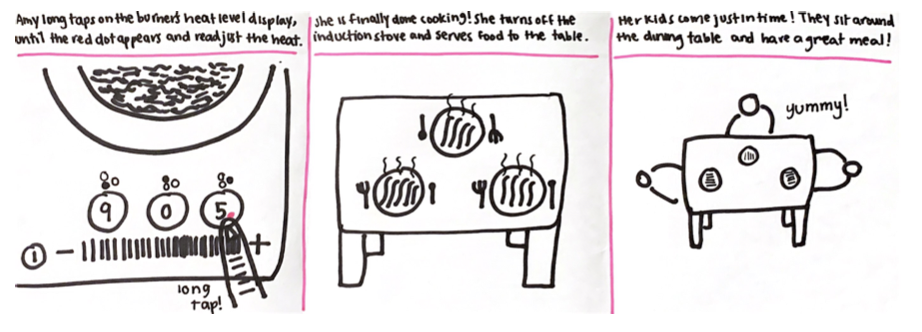 Amy long taps on the burner's heat level display,
until the red dot appears and readjust the heat.
80 80 80
9 0 5.
1 - +
long
tap!
She is finally done cooking! She turns off the
induction stove and serves food to the table.
Her kids come just in time! They sit around
the dining table and have a great meal!
yummy!